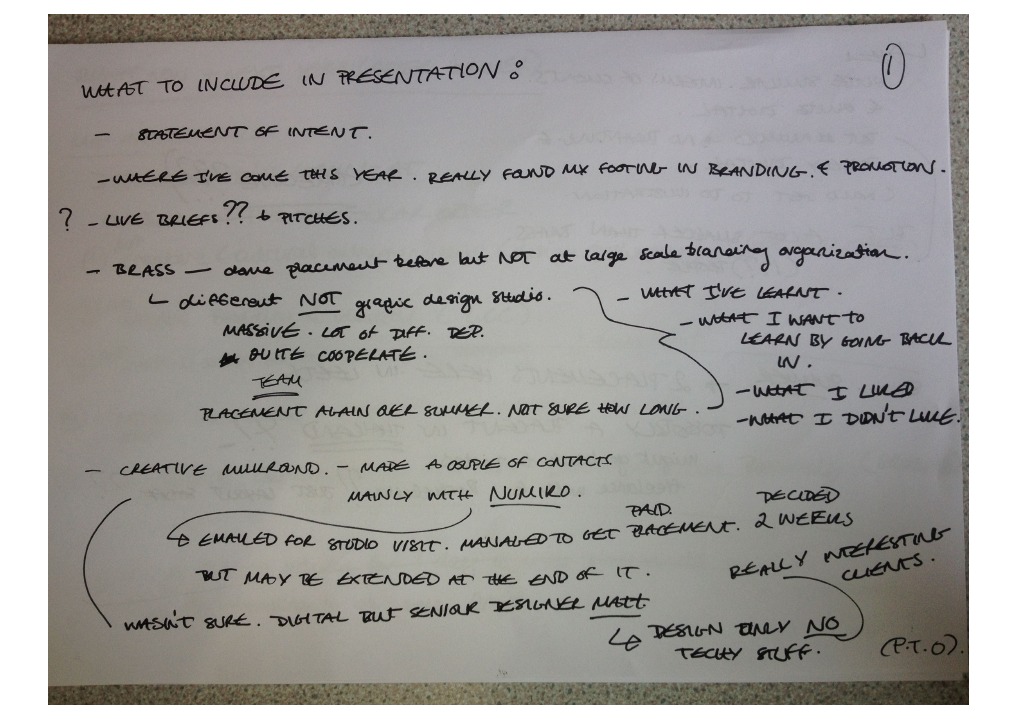 1
WHAT TO INCLUDE IN PRESENTATION:
- STATEMENT OF INTENT.
- WHERE I'VE COME THIS YEAR. REALLY FOUND MY FOOTING IN BRANDING. & PROMOTION.
? - LIVE BRIEFS?? & PITCHES.
- BRASS - done placement before but NOT at large scale branding organization.
different NOT grapic design studio.
MASSIVE. LOT OF DIFF. DEP.
QUITE COOPERATE.
TEAM
PLACEMENT AGAIN OVER SUMMER. NOT SURE HOW LONG.
- WHAT I'VE LEARNT.
- WHAT I WANT TO
LEARN BY GOING BACK
IN.
- WHAT I LIKED
- WHAT I DIDN'T LIKE.
- CREATIVE MILKROUND. - MADE A COUPLE OF CONTACTS
MAINLY WITH NUMIKO.
EMAILED FOR STUDIO VISIT. MANAGED TO GET PAID. PLACEMENT. DECIDED 2 WEEKS
BUT MAY BE EXTENDED AT THE END OF IT.
REALLY INTERESTING
CLIENTS.
WASN'T SURE. DIGITAL BUT SENIOR DESIGNER MATT
DESIGN ONLY NO
TECHY STUFF.
(P.T.O).